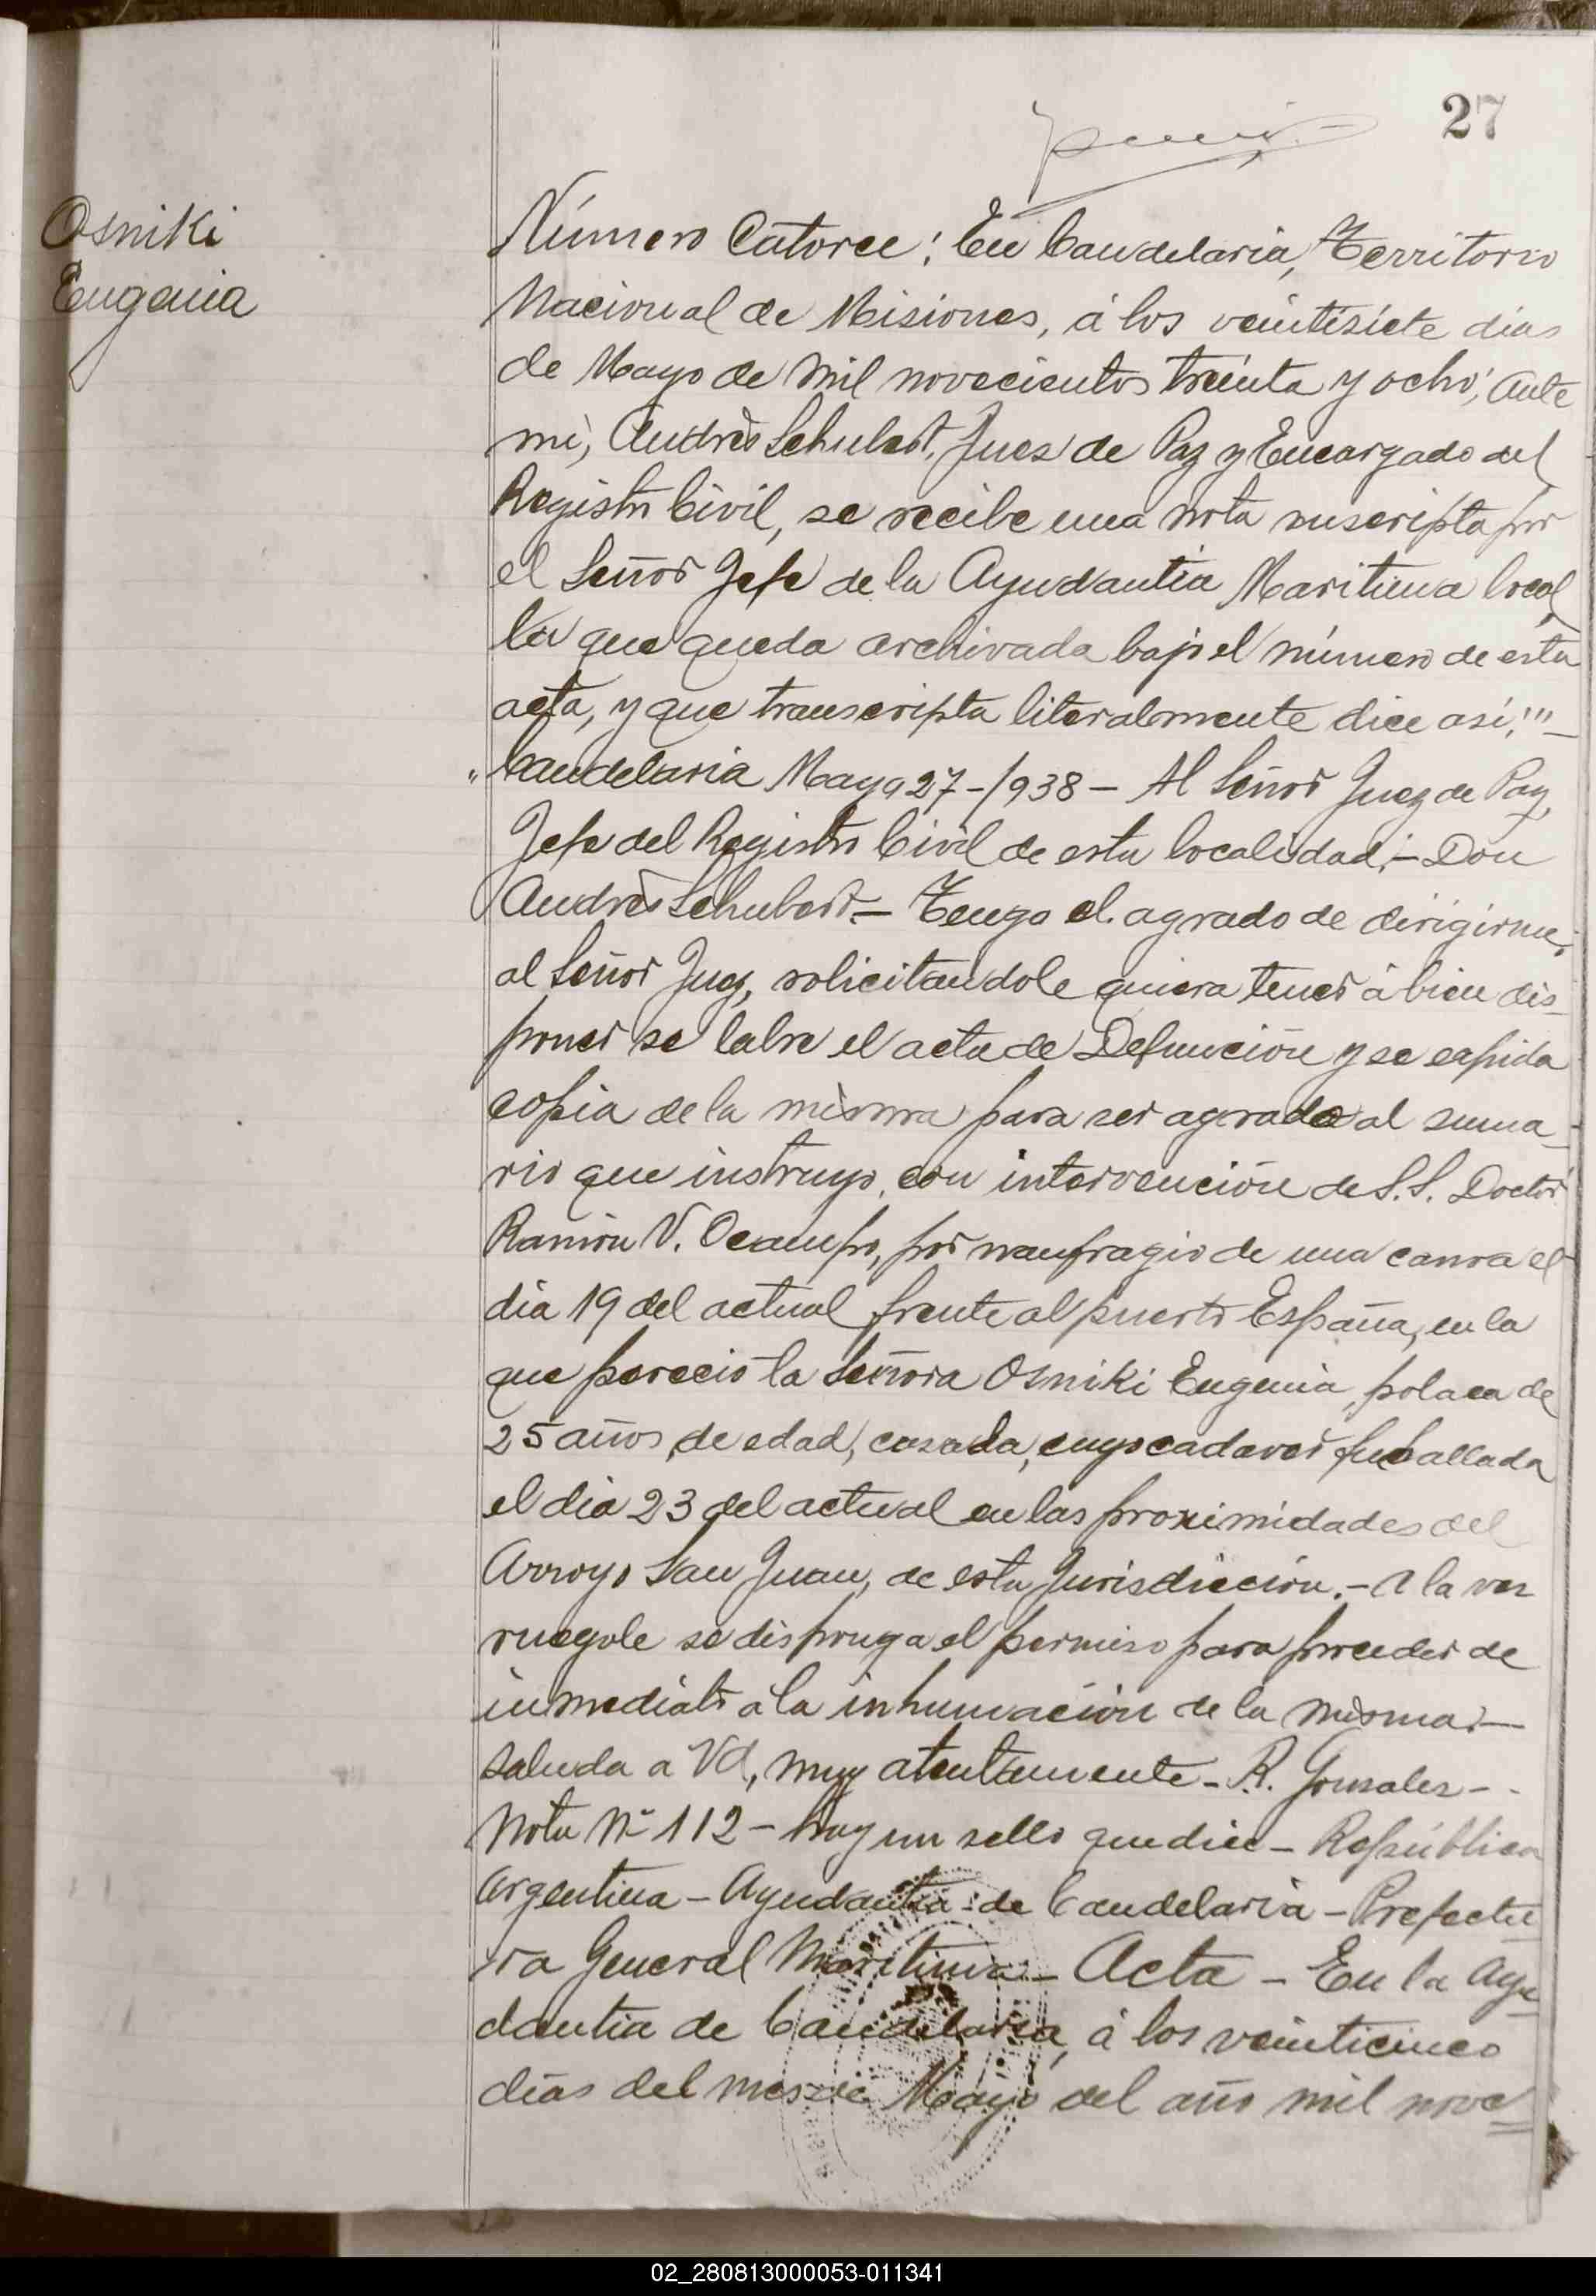 27
Osniki
Eugenia
Número Catorce: En Candelaria, Territorio
Nacional de Misiones, á los veintisiete dias
de Mayo de mil novecientos treinta y ocho; ante
mi, Andrès Schubert, Juez de Paz y Encargado del
Registro Civil, se recibe una nota suscripta por
el Señor Jefe de la Ayudantia Maritima local,
la que queda archivada bajo el número de esta
acta, y que transcripta literalmente dice asi;"'_
"Candelaria Mayo 27-1938 - Al Señor Juez de Paz,
Jefe del Registro Civil de esta localidad.- Don
Andrès Schubert.- Tengo el agrado de dirigirme
al Señor Juez, solicitandole quiera tener á bien dis_
poner se labre el acta de Defunción y se expida
copia de la misma para ser agrada al suma_
rio que instruyo, con intervención de S.S. Doctor
Ramón V. Ocampo, por naufragio de una canoa el
dia 19 del actual frente al puerto España, en la
que pereció la Señora Osniki Eugenia, polaca de
25 años, de edad, casada, cuyo cadaver fue allada
el dia 23 del actual en las proximidades del
Arroyo San Juan, de esta Jurisdicción.- A la vez
ruegole se disponga el permiso para proceder de
inmediato á la inhumación de la misma.-
Saluda a Vd, muy atentamente - R. Gonzalez - -
Nota Nº 112 - hay un sello que dice - República
Argentina - Ayudantia de Candelaria - Prefectu_
ra General Maritima - Acta - En la Ayu_
dantia de Candelaria, á los veinticinco
dias del mes de Mayo del año mil nove=
02_280813000053-011341